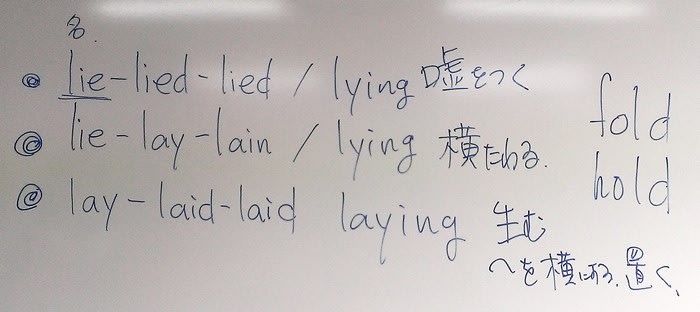 名.
◎ lie-lied-lied / lying 嘘をつく
◎ lie-lay-lain / lying 横たわる.
◎ lay-laid-laid laying 生む
〜を横にする.置く、
fold
hold